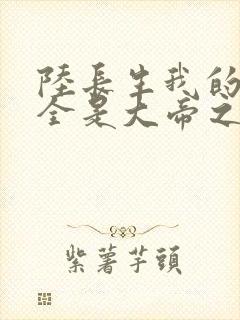 陸長生我的
全是大帝之
紫薯芋頭